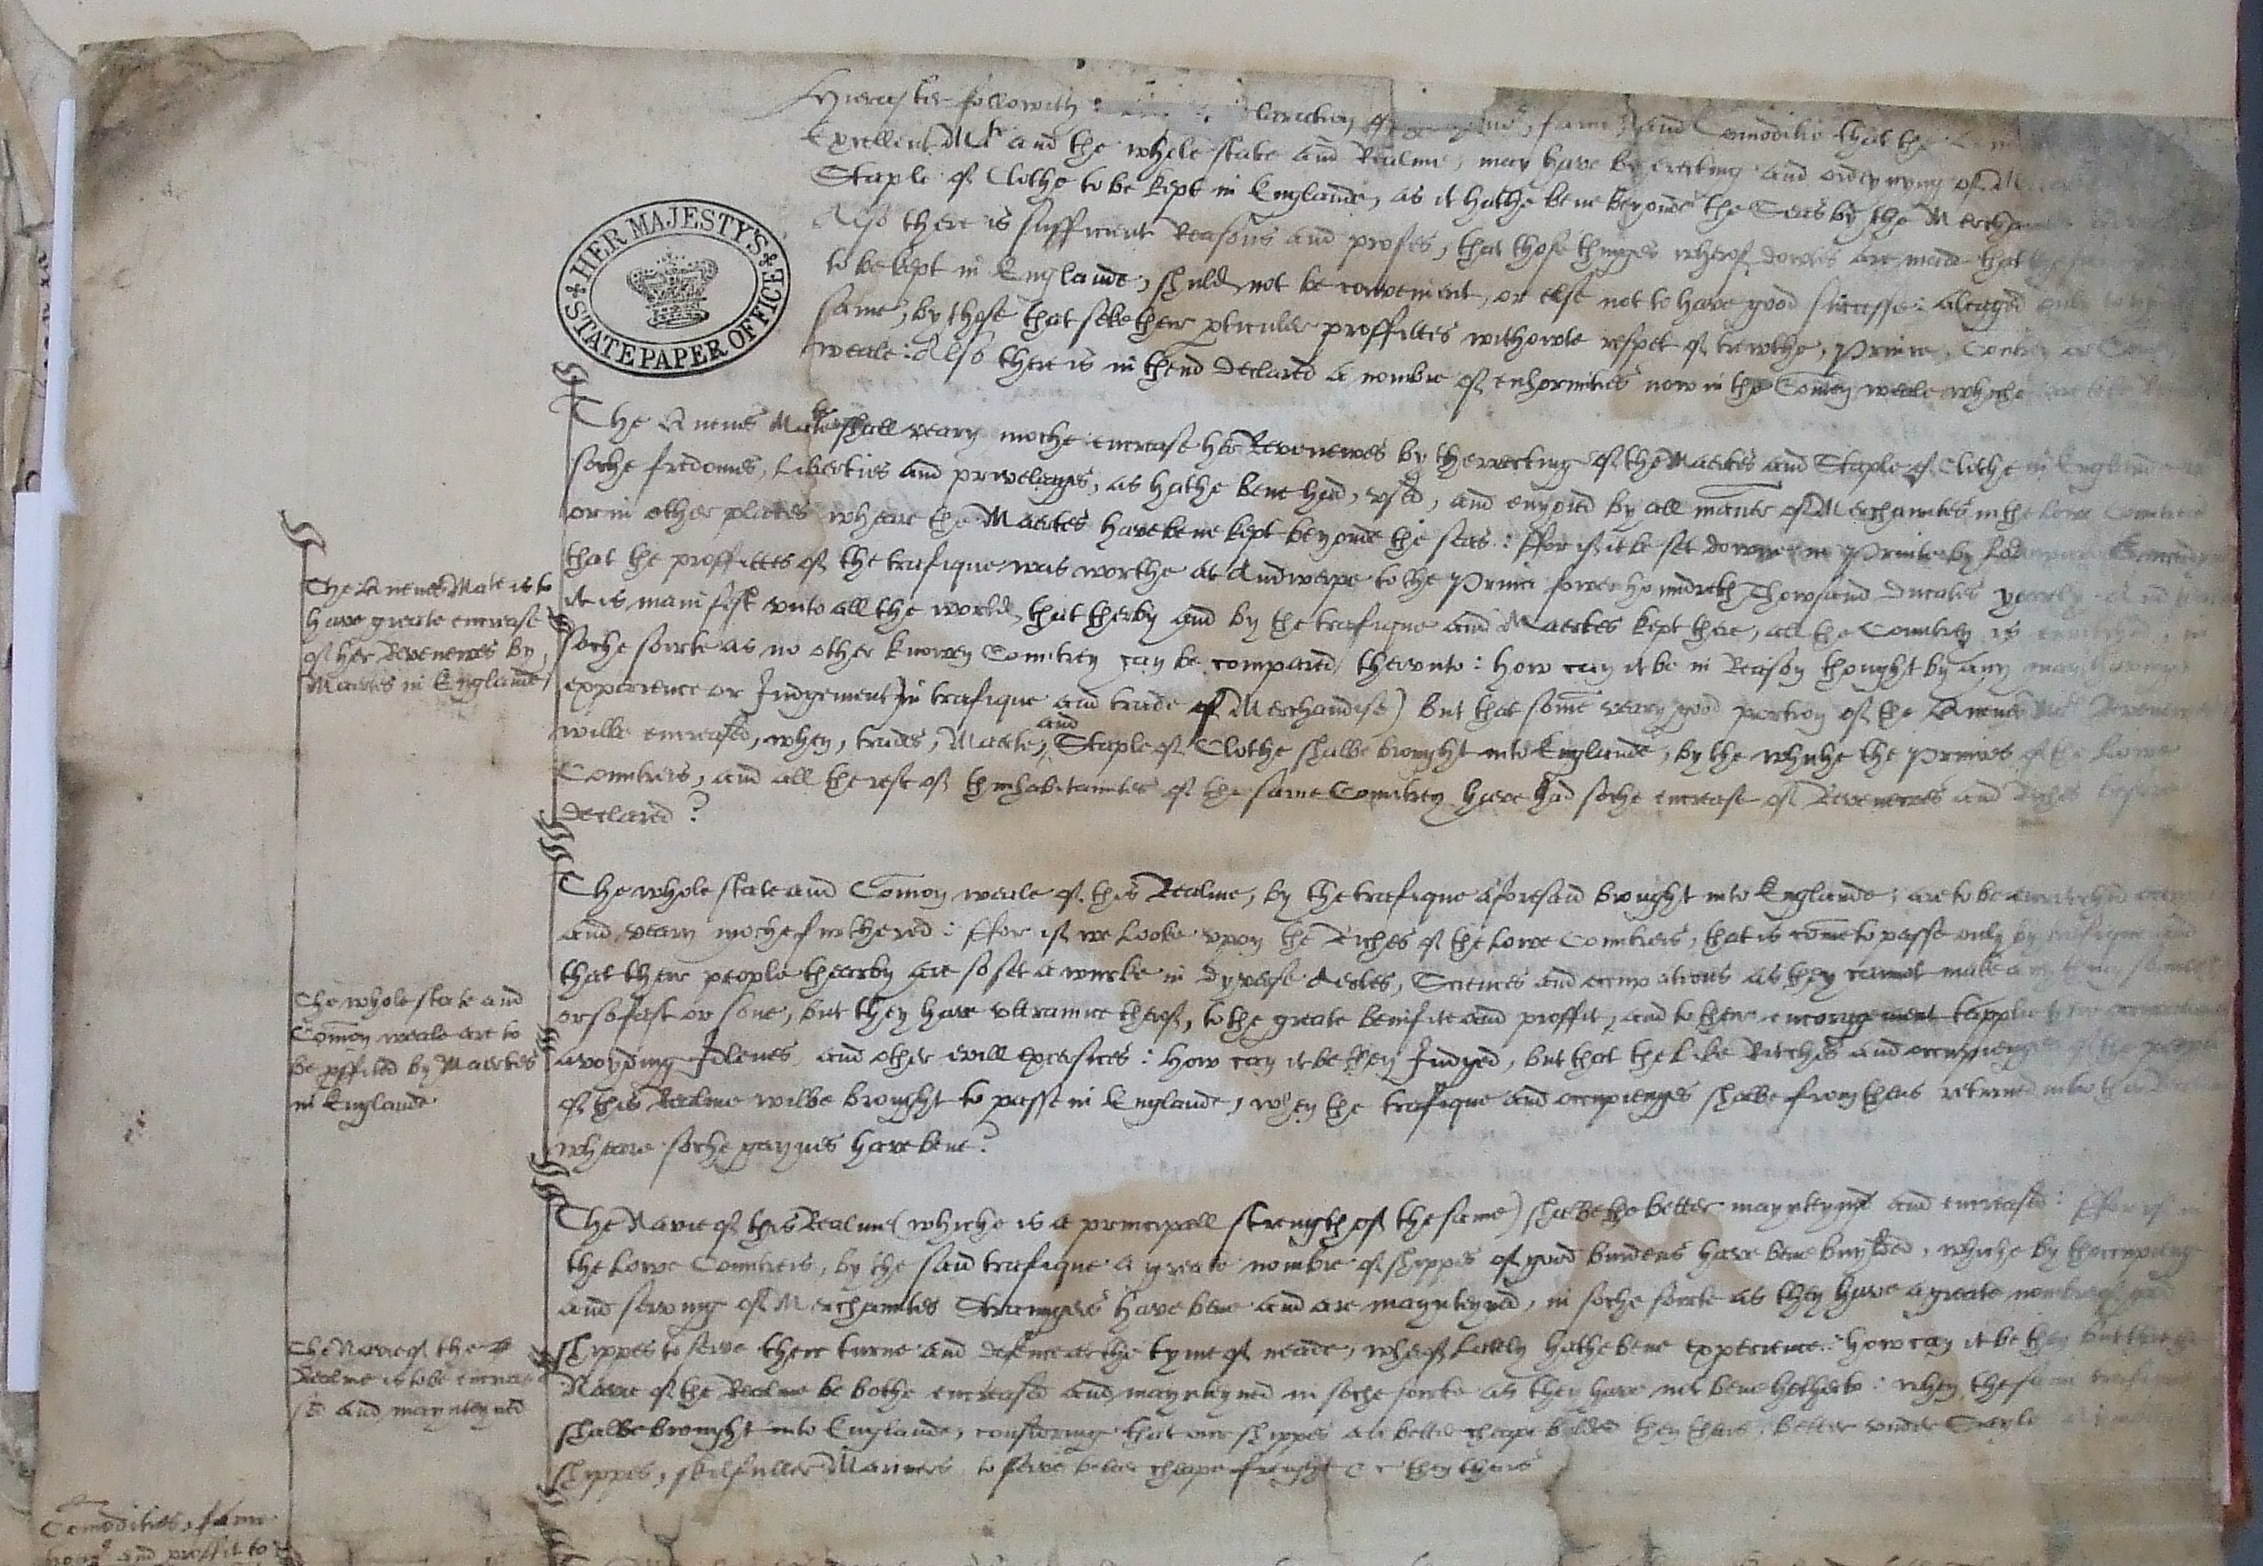 Hierafter followith
Excellent Matie and the whole state and Realme, may have by erecting and ordeynyng of
Staple of Clothe to be kept in Englande, as it hathe bene beyonde the Seas by the
Also there is sufficient Reasons and profes, that those thinges wherof dowtes are made that
to be kept in Englande, shuld not be convenient, or else not to have good successe: aleaged
same, by those that seke their pticuler proffittes withowte respect of trewthe, Prince, Contrey or
weale: Also there is in thend declared a nombre of enhormities now in the Comon weale whiche
HER MAJESTY'S
STATE PAPER OFFICE
The Quenes Matie shall veary moche encrease her Revenewes by therecting of the Martes and Staple of Clothe in Englande
soche fredomes, Liberties and previleages, as hathe bene had, vsed, and enyoied by all maner of Merchauntes in the Lowe Countreis
or in other places wheare the Martes have bene kept beyonde the seas: Ffor if it be set downe in Printe by
that the proffittes of the trafique was worthe at Andwerpe to the Prince fower houndreth Thowsand Ducates yearely
it is manifest vnto all the world, that therby and by the trafique and Martes kept there, all the Countrey is
soche sorte as no other knowen Countrey can be compared thervnto: how can it be in Reason thought by any
experience or Judgement in trafique and trade of Merchandise) But that some veary good portion of the Quenes Maties
wilbe encreased, when, trades, Martes, and Staple of Clothe shalbe brought into Englande, by the whiche the Princes of the Lowe
Countreis, and all the rest of thinhabitauntes of the same Countrey have had soche encrease of Revenewes and Riches before
declared?
The Quenes Matie is to
have greate encrease
of her Revenewes by
Martes in Englande
The whole state and Comon weale of this Realme, by the trafique aforesaid brought into Englande: are to be enriched
and veary moche furthered: Ffor if we Looke vpon the Riches of the Lowe Countreis, that is come to passe only by trafique and
that their people thearby are so set a worke in dyverse Artes, Sciences and occupations as they cannot make
or so fast or sone, but they have vtteraunce therof, to the greate benifite and proffit, and to their encoragement
avoyding Idlenes, and other evill exercises: How can it be then Judged, but that the Like Ritches and occupienges of the people
of this Realme wilbe brought to passe in Englande, when the trafique and occupienges shalbe from thens returned into
wheare soche gaynes have bene?
The whole state and
Comon weale are to
be pffited by Martes
in Englande
The Navie of this Realme (whiche is a principall strength of the same) shalbe the better maynteyned and encreased: Ffor if in
the Lowe Countreis, by the said trafique a greate nombre of shippes of good burdens have bene buylded, whiche by thoccupieng
and serving of Merchauntes Straungers have bene and are maynteyned, in soche sorte as they have a greate nombre of good
shippes to serve their turne and defence at the tyme of neade, wherof Lately hathe bene experience: How can it be then but that the
Navie of the Realme be bothe encreased and maynteyned in soche sorte as they have not bene hetherto: when the said trafique
shalbe brought into Englande, considering that our shippes are better cheape bilded then theirs: better vnder Sayle
shippes, skilfuller Mariners, to serve better cheape frenght &c then theirs
The Navie of the
Realme is to be encrea
sed and maynteyned
Comodities, fame
and proffit to